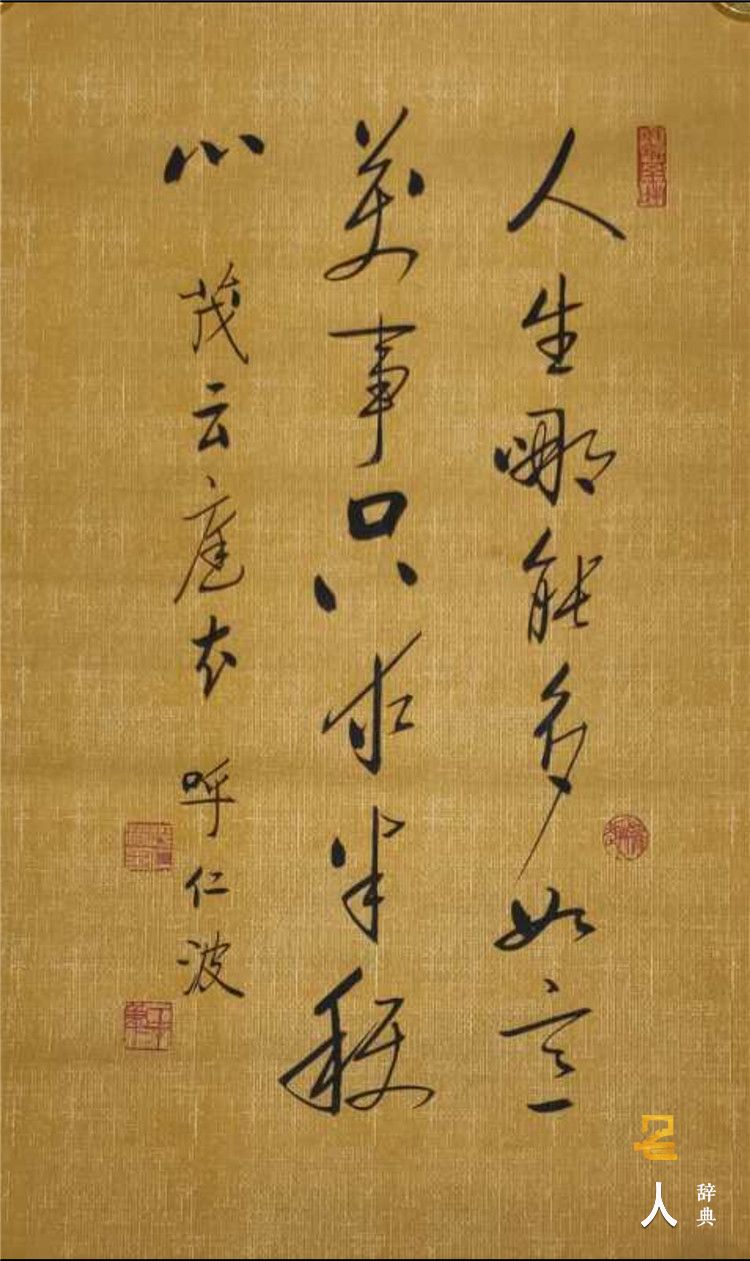 人生哪能多如意
萬事只求半称
心 茂云庭 呼仁波
人
辞典